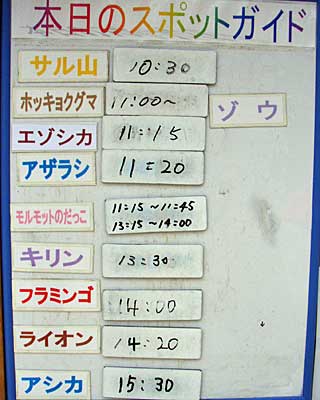 本日のスポットガイド
サル山 10:30
ホッキョクグマ 11:00~ ゾウ
エゾシカ 11:15
アザラシ 11:20
モルモットのだっこ 11:15~11:45
13:15~14:00
キリン 13:30
フラミンゴ 14:00
ライオン 14:20
アシカ 15:30